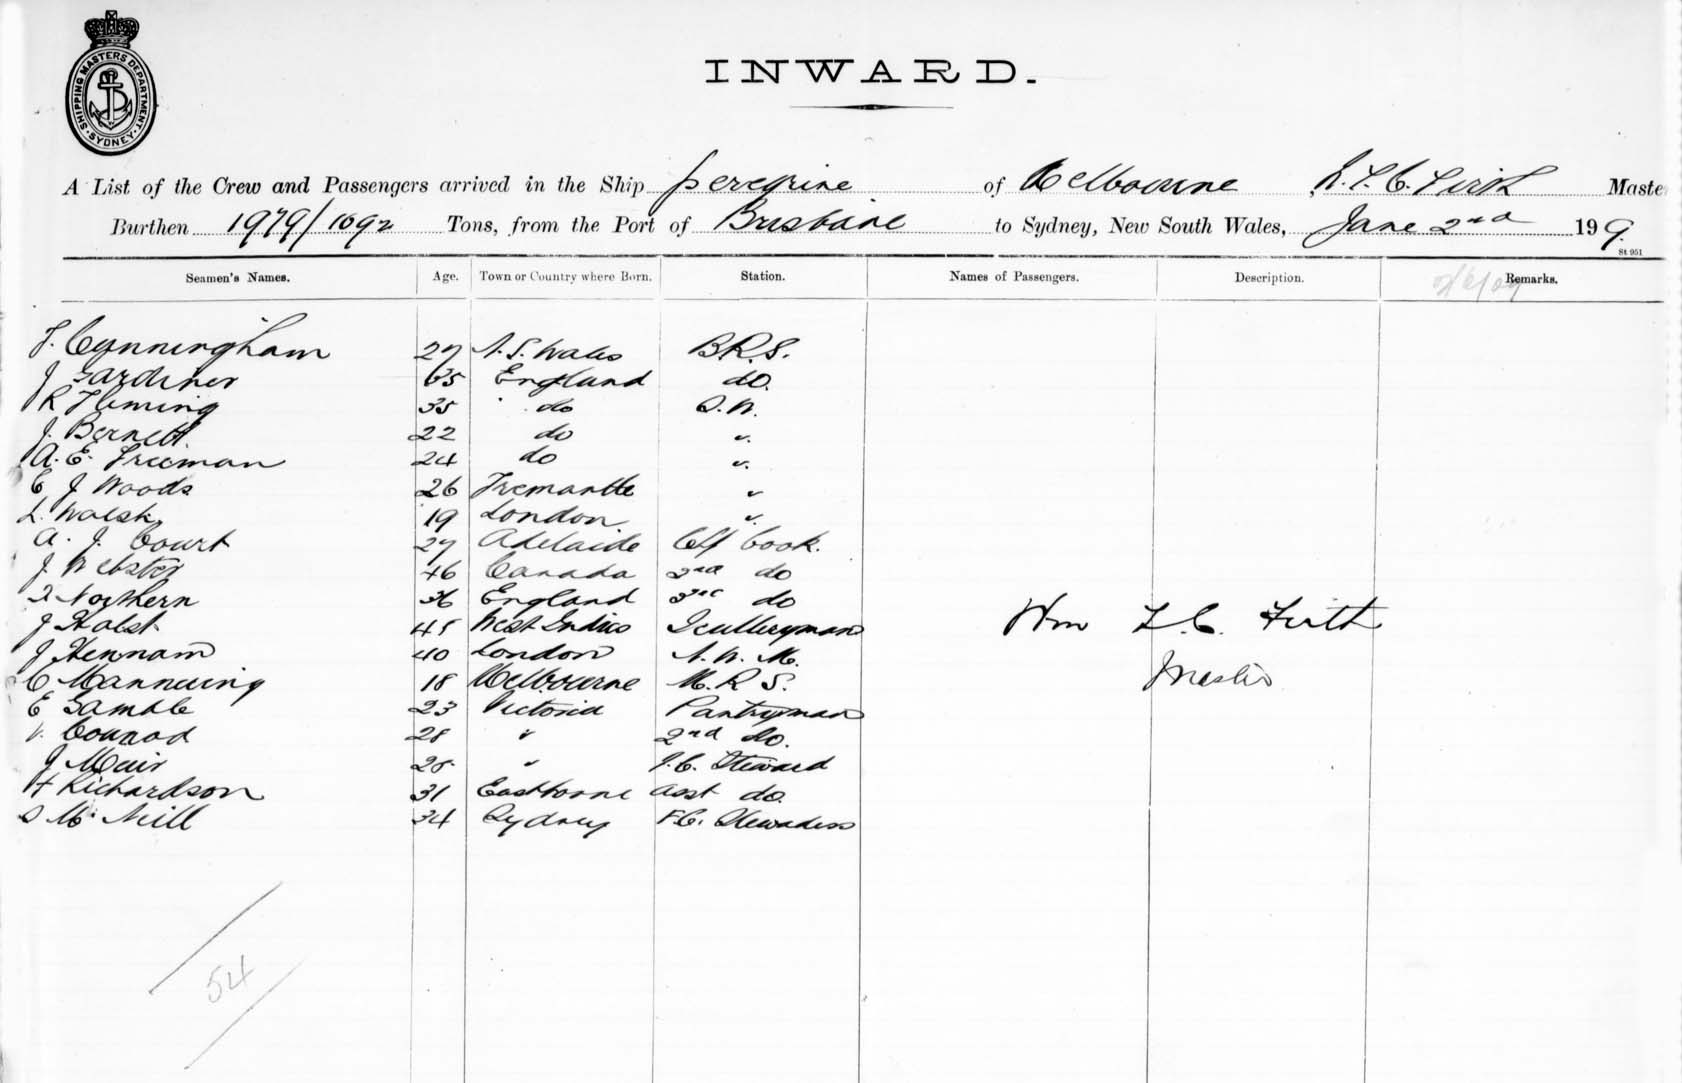 SHIPPING MASTERS DEPARTMENT. SYDNEY
INWARD.
A List of the Crew and Passengers arrived in the Ship Peregrine of Melbourne, Firth Maste
Burthen 1979/1692 Tons, from the Port of Brisbane to Sydney, New South Wales, June 2nd 199.
St 951
Seamen's Names. Age. Town or Country where Born. Station. Names of Passengers. Description. Remarks.
2/6/09
J. Cunningham 27 N.S. Wales B.R.S.
J Gardiner 65 England do.
R Fleming 35 do S.W.
J. Bernett 22 do "
A. E. Freeman 24 do "
E J Woods 26 Fremantle "
L. Walsh 19 London "
A. J. Court 27 Adelaide Chf Cook.
J Webster 46 Canada 2nd do
Northern 36 England 3rd do
J Holst 45 West Indies Sculleryman
J Hennam 40 London N.W.M.
C Mannering 18 Melbourne M.R.S.
E Gamble 23 Victoria Pantryman
Conrod 28 " 2nd do.
J Muir 25 " Steward
H Richardson 31 Eastborne asst do.
S McNeill 34 Sydney F.C. Stewadess
Wm L. C. Firth
Master
54